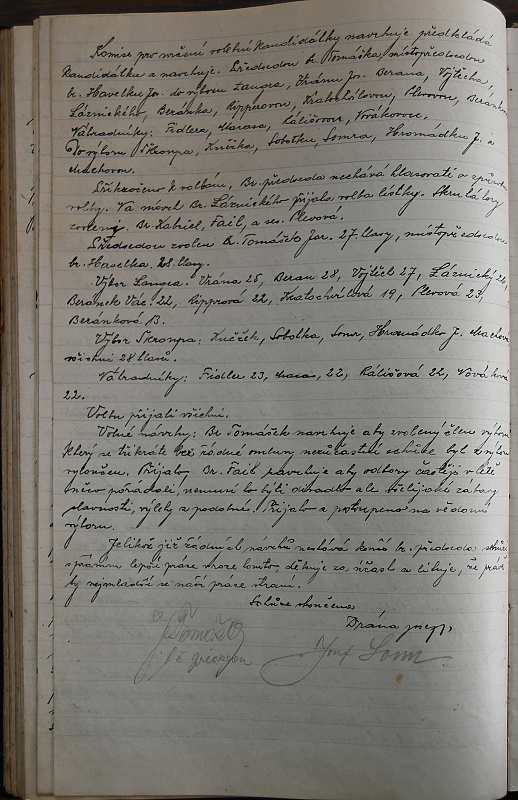 Komise pro určení volební kandidátky navrhuje předkládá
kandidátku a navrhuje. Předsedou br. Tomáška, místopředsedou
br. Havelku Jos. do výboru Langra, Vránu Jos. Berana, Vojtěcha,
Láznického, Beránka, Ripprovou, Kratochvílovou, Plevovou, Beránkovou
Náhradníky: Fidlera, Marara, Rálišovou, Novákovou.
Do výboru Škronpa, Knížka, Sobotku, Somra, Hromádku J. a
Machovou.
Přikročeno k volbám. Br. předseda nechává hlasovati o způsobu
volby. Na návrh Br. Láznického přijata volba lístky. Skrutátory
zvoleny Br. Kabriel, Fail, a ses. Plevová.
Předsedou zvolen Br. Tomášek Jar. 27. hlasy, místopředsedou
br. Havelka. 28. hlasy.
Výbor Langra. Vrána 25, Beran 28, Vojtěch 27, Láznický 24,
Beránek Vác. 22, Ripprová 22, Kratochvílová 19, Plevová 23,
Beránková 13.
Výbor Škronpa: Knížek, Sobotka, Somr, Hromádko J. Machová
všichni 28 hlasů.
Náhradníky: Fidler 23, 22, Rálišová 22, Nováková
22.
Volbu přijali všichni.
Volné návrhy: Br. Tomášek navrhuje aby zvolený člen výboru
který se třikráte bez řádné omluvy nezúčastní schůze byl z výboru
vyloučen. Přijato. Br. Fail navrhuje aby odbory častěji v létě
něco pořádali, nemusí to býti divadlo ale všelijaké zábavy
slavnosti, výlety a podobně. Přijato a postoupeno na vědomí
výboru.
Jelikož již žádných návrhů nestává končí br. předseda schůzi
s přáním lepší práce v roce tomto, děkuje za účast a lituje, že
ty nejmladší se naší práce straní.
Schůze skončena
Vrána Josef.
Tomášek
Josef Somr